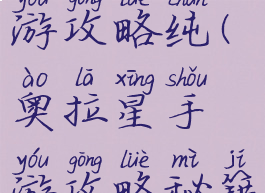 yóu gōng lüè chún
游攻略纯(
ào lā xīng shǒu
奥拉星手
yóu gōng lüè mì jí
游攻略秘籍